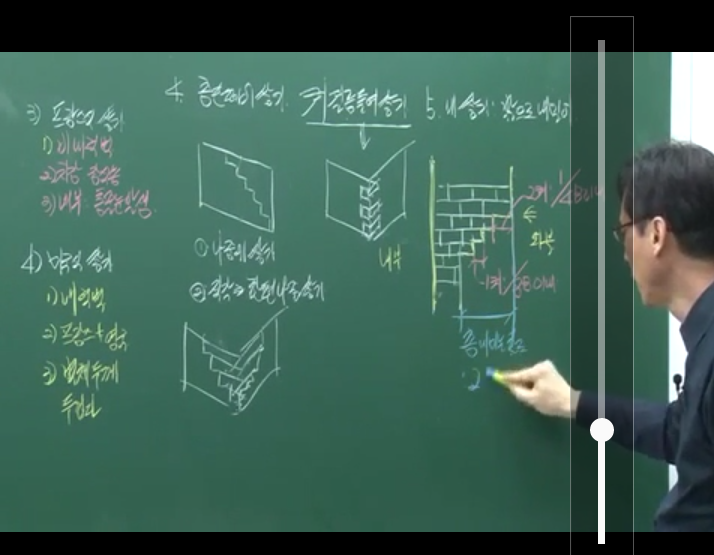 3) 프랑스식 쌓기
1) 비내력벽
2) 치장
3) 내부 통줄눈 발생
4) 쌓기
1) 내력벽
2) 프랑스 + 영국
3) 벽체두께
두껍다
4. 층단떼어쌓기
켜걸름들여쌓기
내부
① 나중에 쌓기
② 나중쌓기
5. 내쌓기: 밖으로 내밀어
2켜 1/4B 이내
외부
1켜 1/8B 이내
총 내미는 한도
2